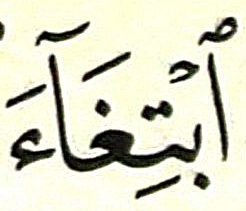 ٱبۡتِغَآءَ